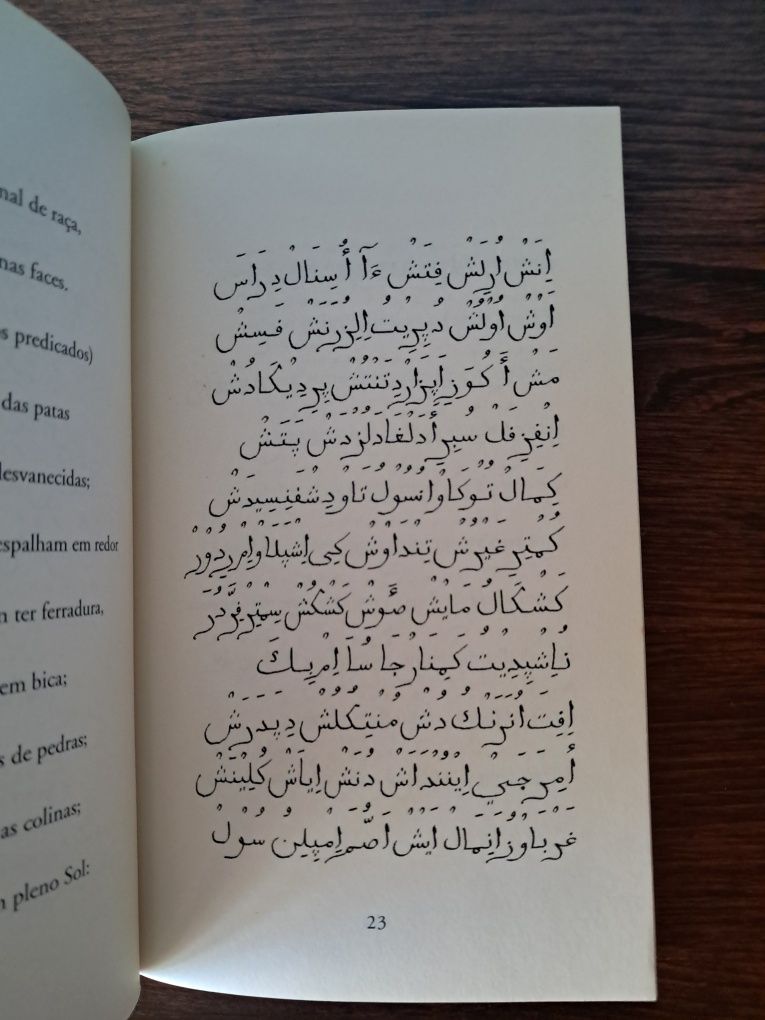 nal de raça,
nas faces.
os predicados)
das patas
desvanecidas;
espalham em redor
n ter ferradura,
em bica;
s de pedras;
as colinas;
n pleno Sol:
اِنَشْ اُرِلَشْ فِتَشْ ءَآ أُ سِنَالْ دِ رَاسَ
اَوْشْ اُوُلُشْ دُ پِرِيتُ اِلِزِرَنْشْ فَسِشْ
مَشْ أَ كُوَزِ اَپِزَارْ دِتَنْتُشْ پِرِدِيكَادُشْ
اِنْفِزِ فَلْ سُبِرِ أَدَلْغَادَلِزْ دَشْ پَتَشْ
كِمَالْ تَوكَاوْ اَنْسُولُ تَاوْ دِشْفَنِسِيدَشْ
كُمُتِرِ غِيرُشْ تِنْدَاوْشْ كِى اِشْپَلَاوْ اِمْ رِدُوْرْ
كَشْكَالُ مَايْشْ صَوْشْ كَشْكُشْ سِمْتِرْ فِرَّدُرَ
نُاِشْپِدِيتُ كَمِنَارْ جَا سُاَ اِمْ بِيكَ
اِفِتَ اُنَرَنْكُ دُشْ مُنْتِكُلُشْ دِ پِدَرَشْ
أُمَرَجَيْ اِيْنُنْدَاَشْ دُنَشْ اِيَاشْ كُلِيْنَشْ
غَرَبَاوُزْ اَنِمَالْ اَيْشْ اَصُّمَ اِمْپِلِنُ سُولْ
23